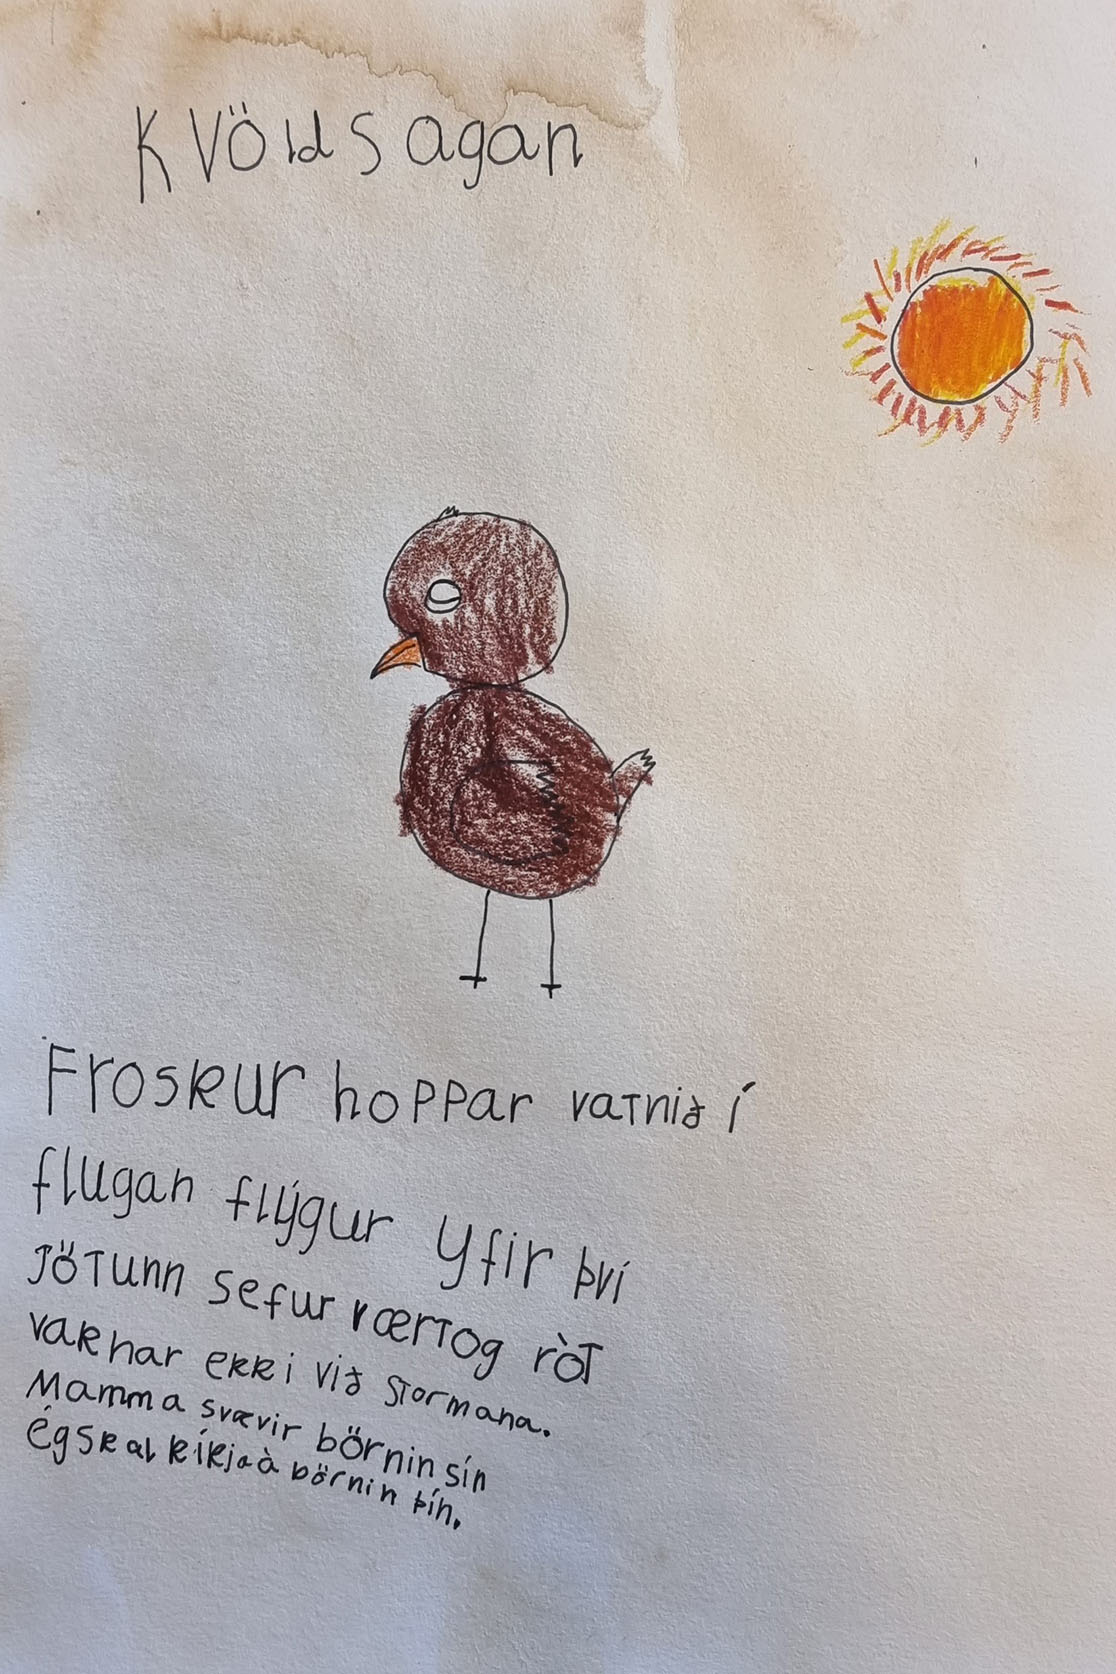 Kvöldsagan
Froskur hoppar vatnið í
flugan flýgur yfir því
Jötunn sefur værtog ròt
vaknar ekki við stormana.
Mamma svævir börnin sín
Ég skal kíkja à börnin þín.